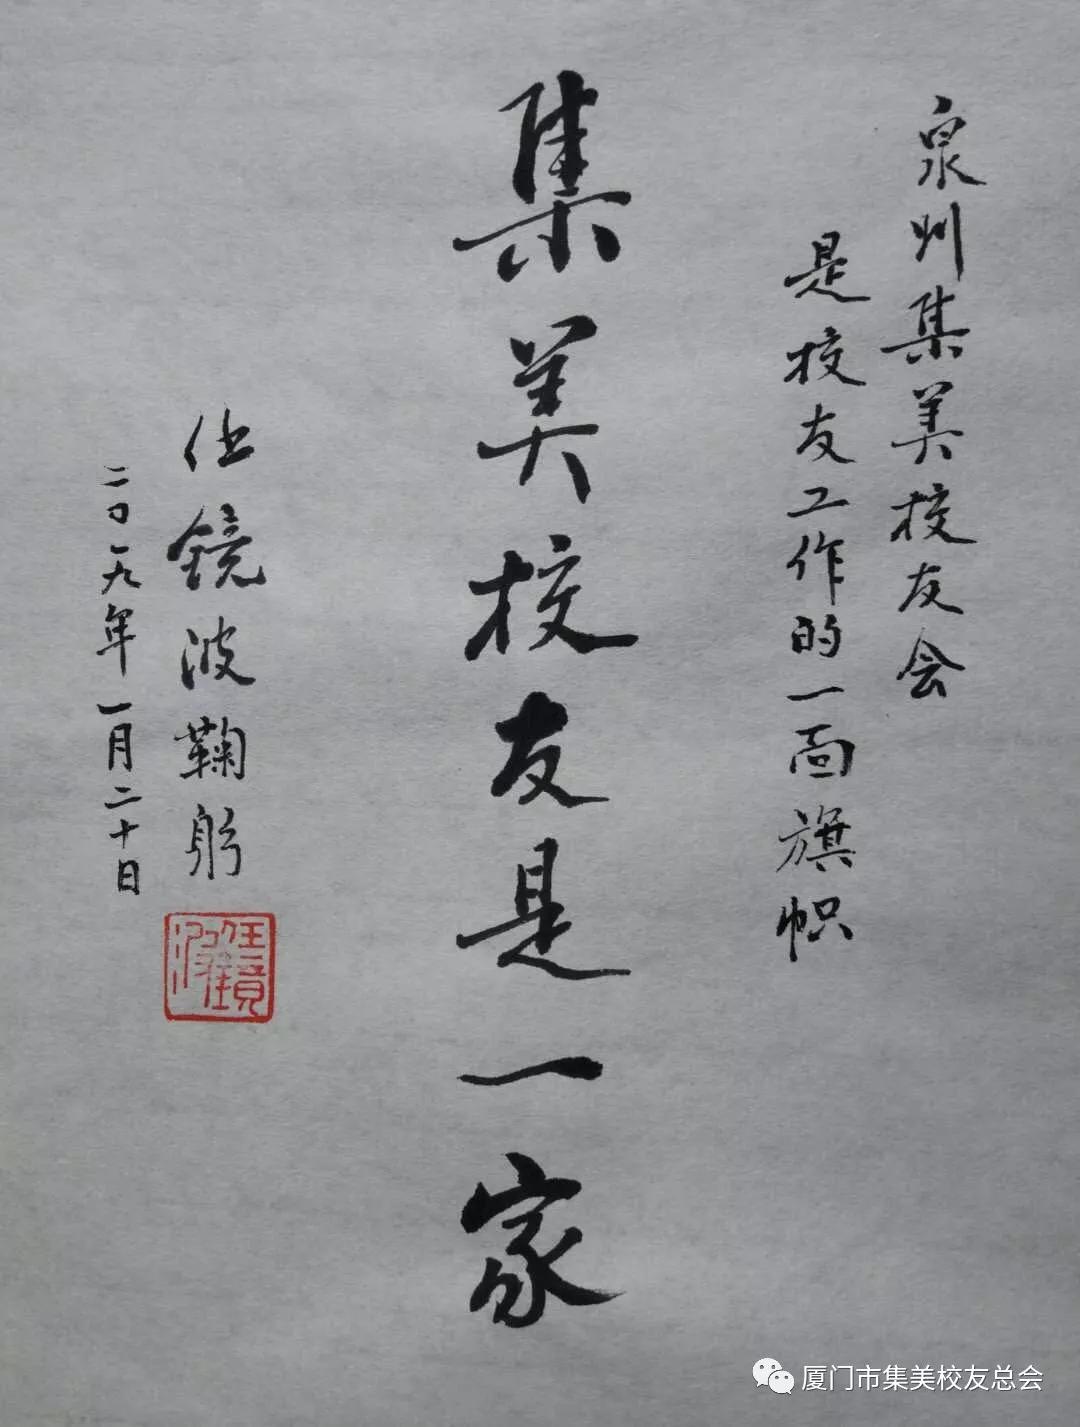 泉州集美校友会
是校友工作的一面旗帜
集美校友是一家
任镜波鞠躬
二〇一九年一月二十日
任镜波
厦门市集美校友总会